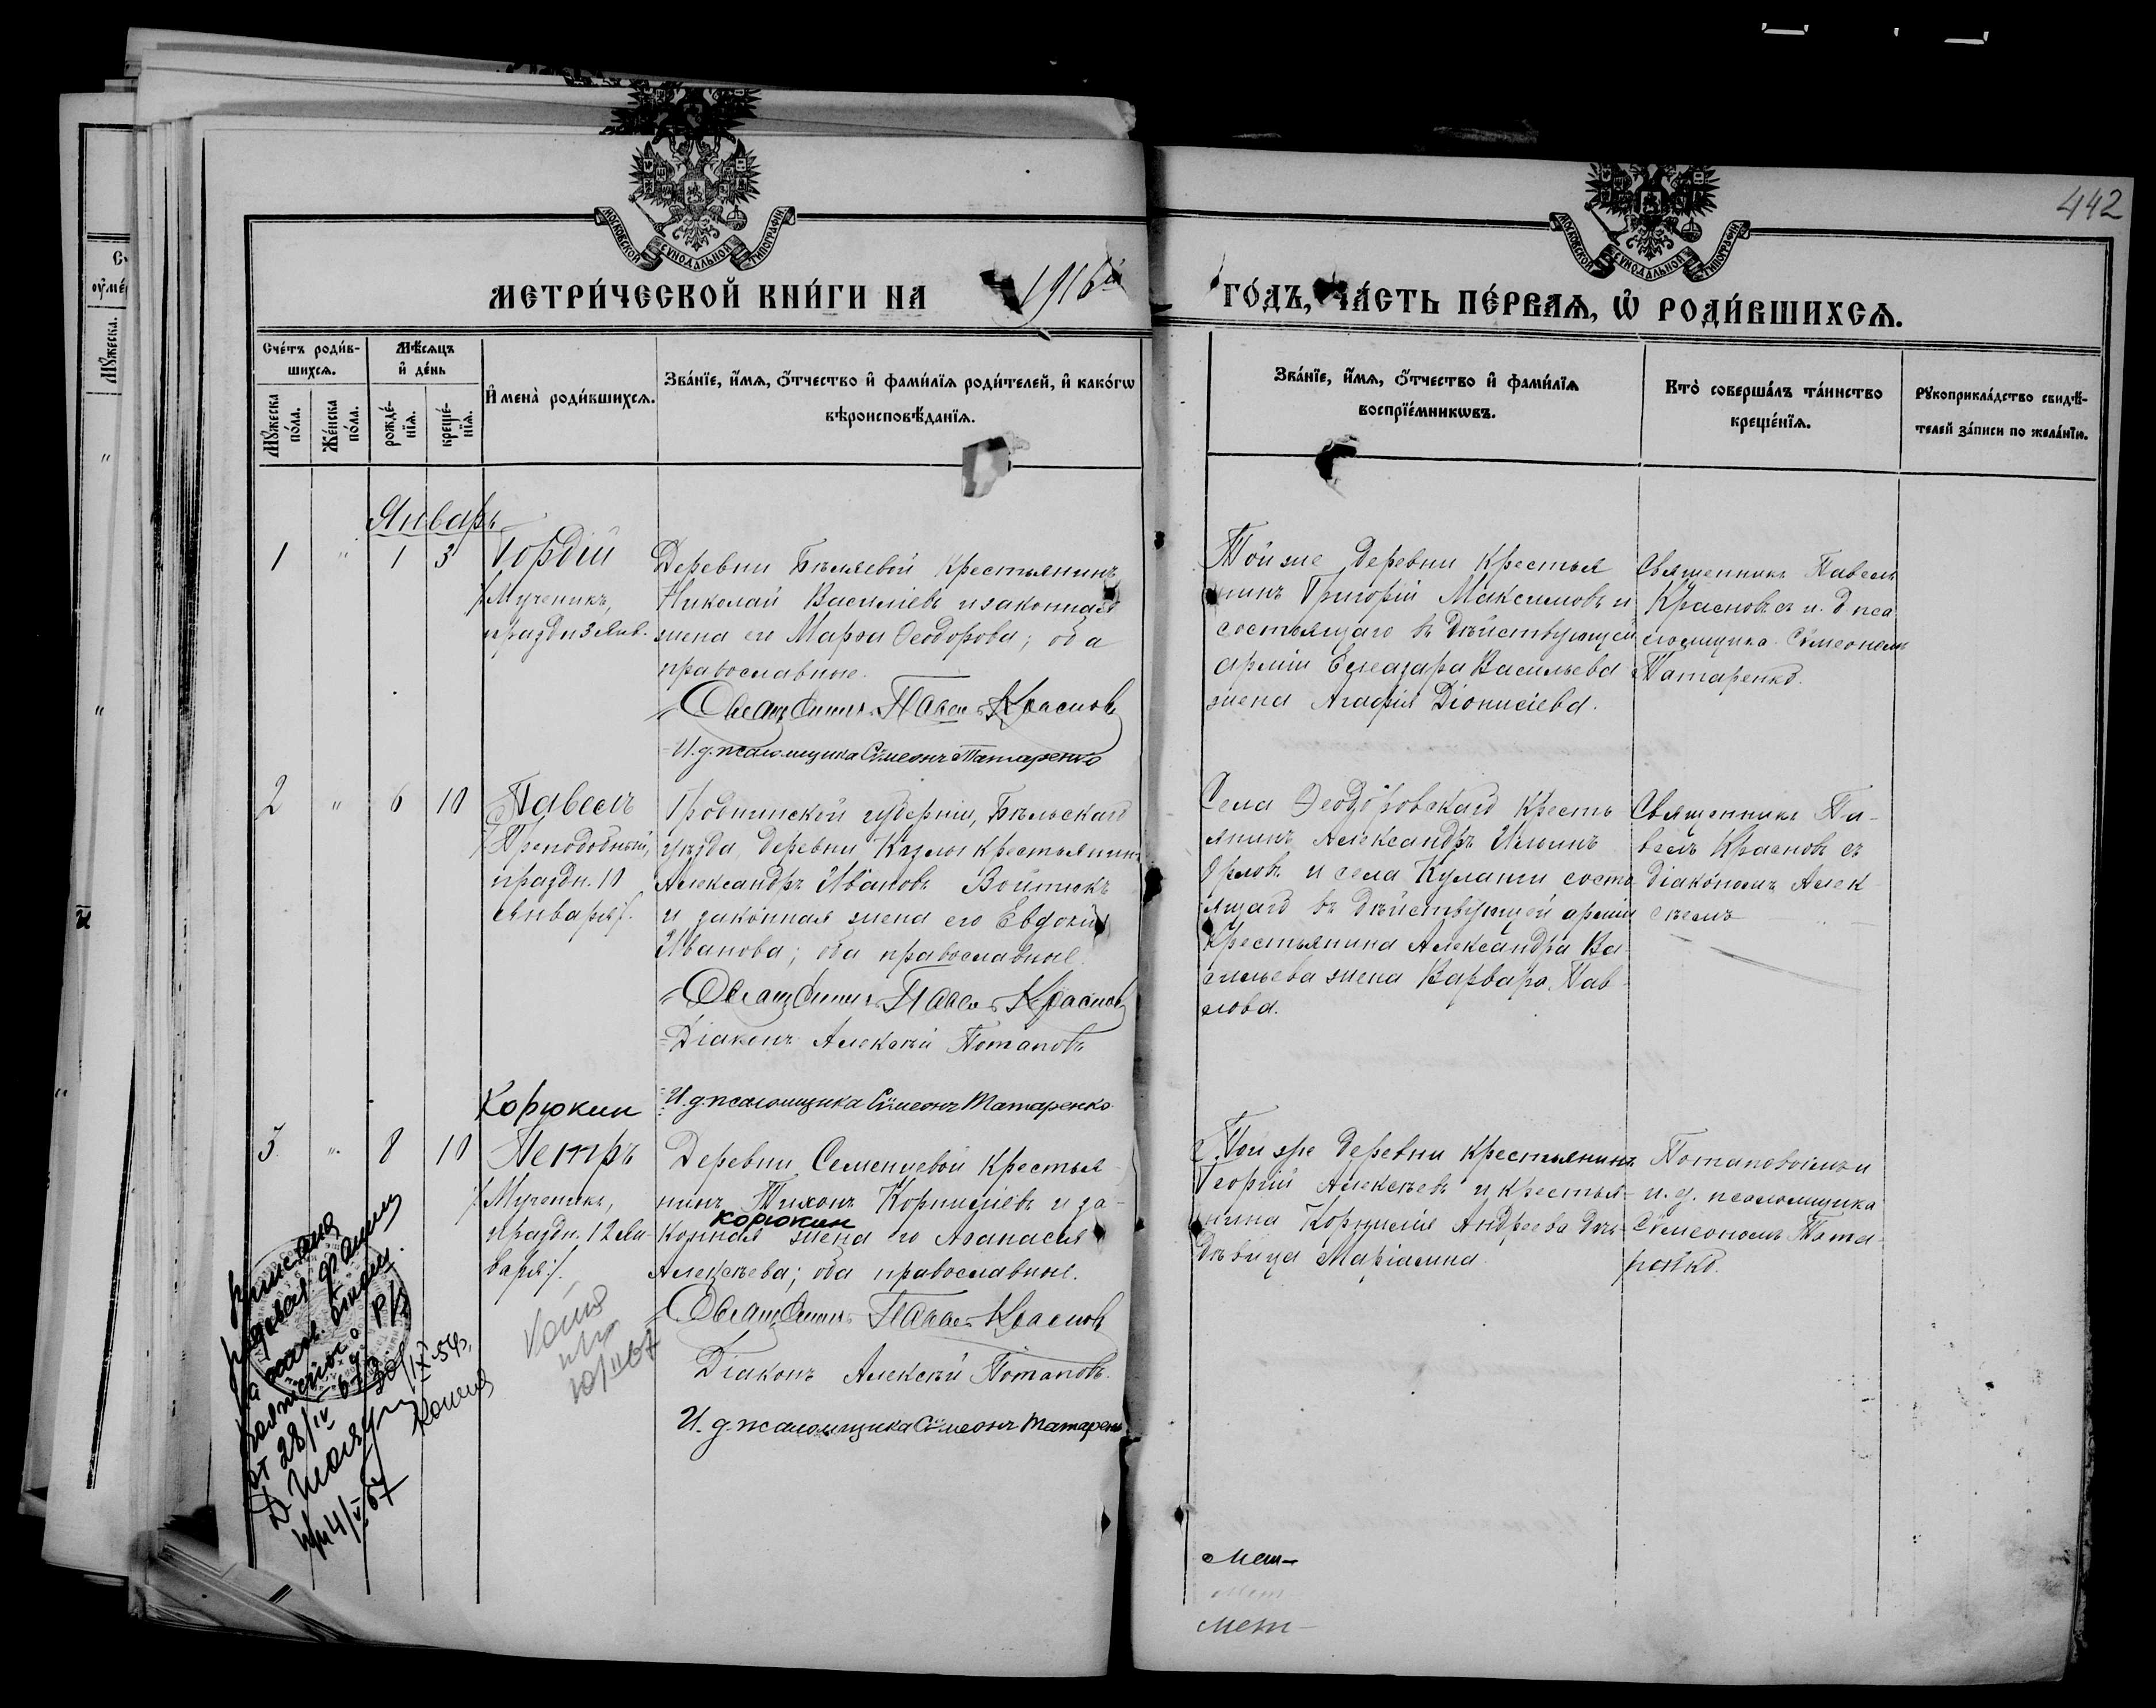 442
МОСКОВСКОЙ СѴНОДАЛЬНОЙ ТИПОГРАФІИ
МОСКОВСКОЙ СѴНОДАЛЬНОЙ ТИПОГРАФІИ
МЕТРИ́ЧЕСКОЙ КНИ́ГИ НА 1916й ГО́ДЪ, ЧА́СТЬ ПЕ́РВАЯ, Ѡ҆ РОДИ́ВШИХСЯ.
Сче́тъ роди́в-
шихся.
Мꙋ́жеска по́ла.
Же́нска по́ла.
Мѣ́сяцъ
и҆ де́нь
рожде́-
нїя.
креще́-
нїя.
И҆мена̀ роди́вшихся.
Зва́нїе, и҆́мя, ѻ҆́тчество и҆ фами́лїя роди́телей, и҆ како́гѡ
вѣроисповѣ́данїя.
Зва́нїе, и҆́мя, ѻ҆́тчество и҆ фами́лїя
воспрїе́мникѡвъ.
Кто̀ соверша́лъ та́инство
креще́нїя.
Рꙋкоприкла́дство свидѣ́-
телей за́писи по жела́нїю.
Январь
1 " 1 3
Гордій
/Мученикъ,
праздн. 3 Янв.
Деревни Бѣляевой крестьянинъ
Николай Василіевъ и законная
жена его Марѳа Ѳеодорова; оба
православные.
Священникъ Павелъ Красновъ
И. д. псаломщика Сѵмеонъ Татаренко
Той же деревни крестья
нинъ Григорій Максимовъ и
состоящаго въ дѣйствующей
арміи Елеазара Васильева
жена Агафія Діонисіева.
Священникъ Павелъ
Красновъ съ и. д. пса
ломщика Сѵмеономъ
Татаренко.
2 " 6 10
Павелъ
/Преподобный,
праздн. 10
Января/.
Гродненской губерніи, Бѣльскаго
уѣзда, деревни Козлы крестьянинъ
Александръ Ивановъ Войтюкъ
и законная жена его Евдокія
Иванова; оба православные.
Священникъ Павелъ Красновъ
Діаконъ Алексѣй Потаповъ
И. д. псаломщика Сѵмеонъ Татаренко.
Села Ѳеодоровскаго кресть
янинъ Александръ Ильинъ
Орловъ и села Кулаги состо
ящаго въ дѣйствующей арміи
крестьянина Александра Ва-
сильева жена Варвара Пав-
лова.
Священникъ Па-
велъ Красновъ съ
діакономъ Алек-
сѣемъ
Корюкин
3 " 8 10
Петръ
/Мученикъ,
праздн. 12 Ян-
варя/.
Деревни Семенцевой крестья
нинъ Тихонъ Корнилiевъ и за-
корюкин
конная жена его Аѳанасія
Алексѣева; оба православные.
Священникъ Павелъ Красновъ
Діаконъ Алексѣй Потаповъ.
И. д. псаломщика Сѵмеонъ Татаренко
Той же деревни крестьянинъ
Георгій Алексѣевъ и крестья-
нина Корнилія Андреева дочь
дѣвица Маріамна.
Потаповымъ и
и. д. псаломщика
Сѵмеономъ Тата-
ренко.
от 28/IV
30/IX-54г.
Копия
4/V 67